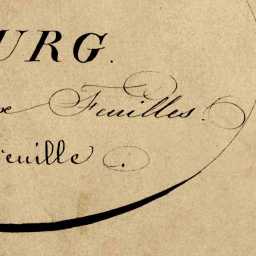 URG.
Feuilles.
euille.